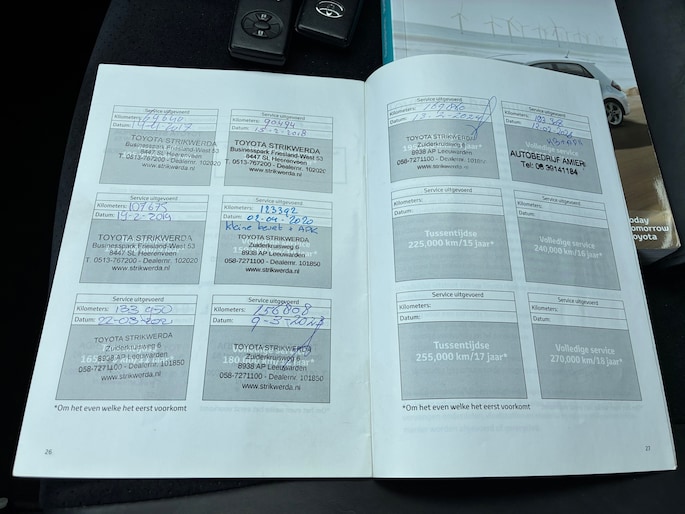 Service uitgevoerd
Kilometers: 69640
Datum:
TOYOTA STRIKWERDA
Businesspark Friesland-West 53
8447 SL Heerenveen
T. 0513-767200 - Dealernr. 102020
www.strikwerda.nl
Service uitgevoerd
Kilometers: 90494
Datum: 15-2-2018
TOYOTA STRIKWERDA
Businesspark Friesland-West 53
8447 SL Heerenveen
T. 0513-767200 - Dealernr. 102020
www.strikwerda.nl
Service uitgevoerd
Kilometers: 107675
Datum: 19-2-2019
TOYOTA STRIKWERDA
Businesspark Friesland-West 53
8447 SL Heerenveen
T. 0513-767200 - Dealernr. 102020
www.strikwerda.nl
Service uitgevoerd
Kilometers: 123392
Datum: 02-04-2020
kleine beurt + APK
TOYOTA STRIKWERDA
Zuiderkruisweg 6
8938 AP Leeuwarden
058-7271100 - Dealernr. 101850
www.strikwerda.nl
Service uitgevoerd
Kilometers: 133450
Datum: 22-03-2021
TOYOTA STRIKWERDA
Zuiderkruisweg 6
8938 AP Leeuwarden
058-7271100 - Dealernr. 101850
www.strikwerda.nl
Service uitgevoerd
Kilometers: 156808
Datum: 9-3-2023
TOYOTA STRIKWERDA
Zuiderkruisweg 6
8938 AP Leeuwarden
058-7271100 - Dealernr. 101850
www.strikwerda.nl
*Om het even welke het eerst voorkomt
26
Service uitgevoerd
Kilometers:
Datum:
TOYOTA STRIKWERDA
Zuiderkruisweg 6
8938 AP Leeuwarden
058-7271100 - Dealernr. 101850
www.strikwerda.nl
Service uitgevoerd
Kilometers:
Datum:
AUTOBEDRIJF AMIERI
Tel: 06 39141184
Service uitgevoerd
Kilometers:
Datum:
Tussentijdse
225,000 km/15 jaar*
Service uitgevoerd
Kilometers:
Datum:
Volledige service
240,000 km/16 jaar*
Service uitgevoerd
Kilometers:
Datum:
Tussentijdse
255,000 km/17 jaar*
Service uitgevoerd
Kilometers:
Datum:
Volledige service
270,000 km/18 jaar*
*Om het even welke het eerst voorkomt
27
today
tomorrow
toyota